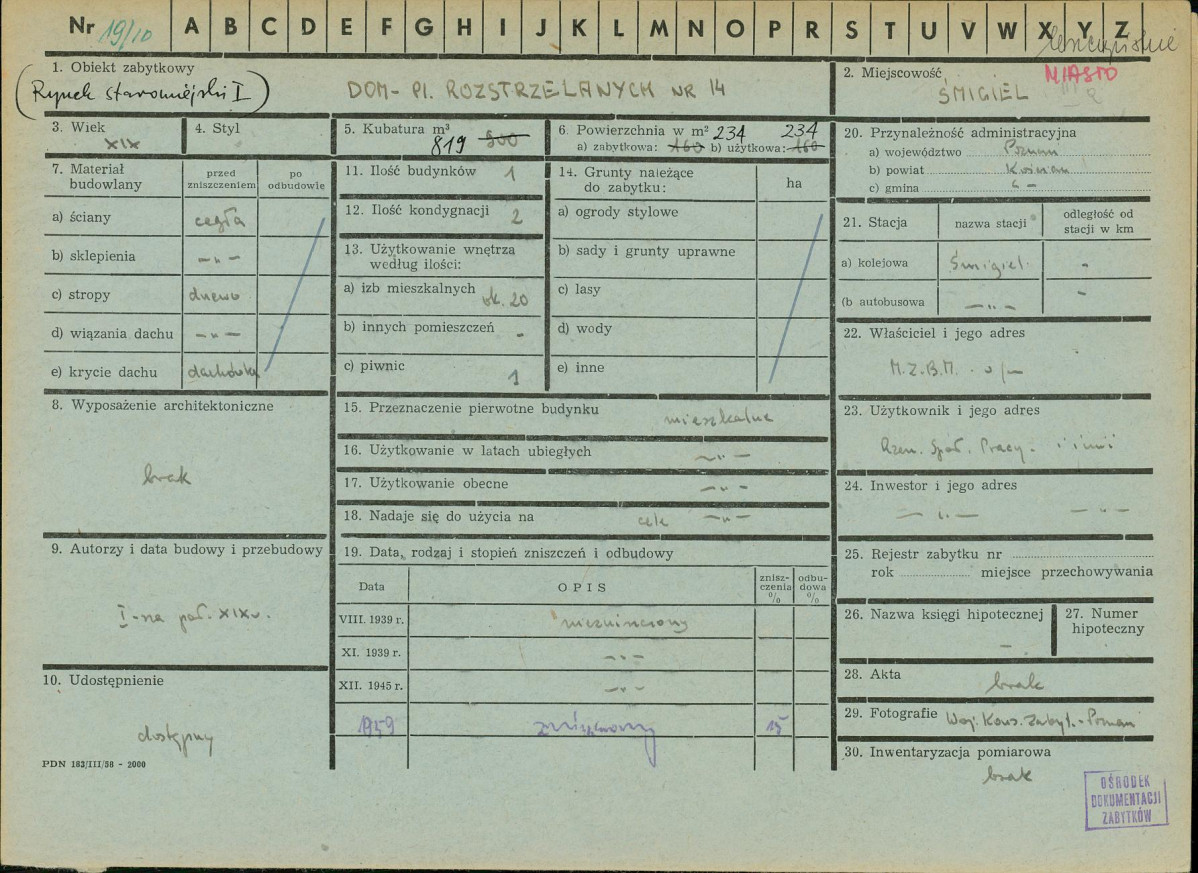 Nr 19/10 A B C D E F G H I J K L M N O P R S T U V W X Y Z
1. Obiekt zabytkowy
(Rynek staromiejski I)
DOM - Pl. ROZSTRZELANYCH NR 14
2. Miejscowość MIASTO
ŚMIGIEL
3. Wiek
XIX
4. Styl
5. Kubatura m³
819 500
6. Powierzchnia w m² 234 234
a) zabytkowa: 160 b) użytkowa: 160
7. Materiał budowlany
przed zniszczeniem
po odbudowie
a) ściany cegła
b) sklepienia -"-
c) stropy drewno
d) wiązania dachu -"-
e) krycie dachu dachówka
8. Wyposażenie architektoniczne
brak
9. Autorzy i data budowy i przebudowy
I-na poł. XIX w.
10. Udostępnienie
dostępny
PDN 183/III/58 - 2000
11. Ilość budynków 1
12. Ilość kondygnacji 2
13. Użytkowanie wnętrza
według ilości:
a) izb mieszkalnych ok. 20
b) innych pomieszczeń -
c) piwnic 1
14. Grunty należące
do zabytku:
ha
a) ogrody stylowe
b) sady i grunty uprawne
c) lasy
d) wody
e) inne
15. Przeznaczenie pierwotne budynku mieszkalne
16. Użytkowanie w latach ubiegłych -"-
17. Użytkowanie obecne -"-
18. Nadaje się do użycia na cele -"-
19. Data, rodzaj i stopień zniszczeń i odbudowy
Data
OPIS
znisz-
czenia
%
odbu-
dowa
%
VIII. 1939 r. niezniszczony
XI. 1939 r. -"-
XII. 1945 r. -"-
1959 15
20. Przynależność administracyjna
a) województwo Poznań
b) powiat Kościan
c) gmina
21. Stacja
nazwa stacji
odległość od
stacji w km
a) kolejowa Śmigiel -
(b autobusowa -"- -
22. Właściciel i jego adres
M.Z.B.M.
23. Użytkownik i jego adres
Rzem. Spół. Pracy i inni
24. Inwestor i jego adres
-"- -"-
25. Rejestr zabytku nr
rok miejsce przechowywania
26. Nazwa księgi hipotecznej
-
27. Numer
hipoteczny
28. Akta
brak
29. Fotografie Woj. Kons. Zabyt. - Poznań
30. Inwentaryzacja pomiarowa
brak
OŚRODEK
DOKUMENTACJI
ZABYTKÓW